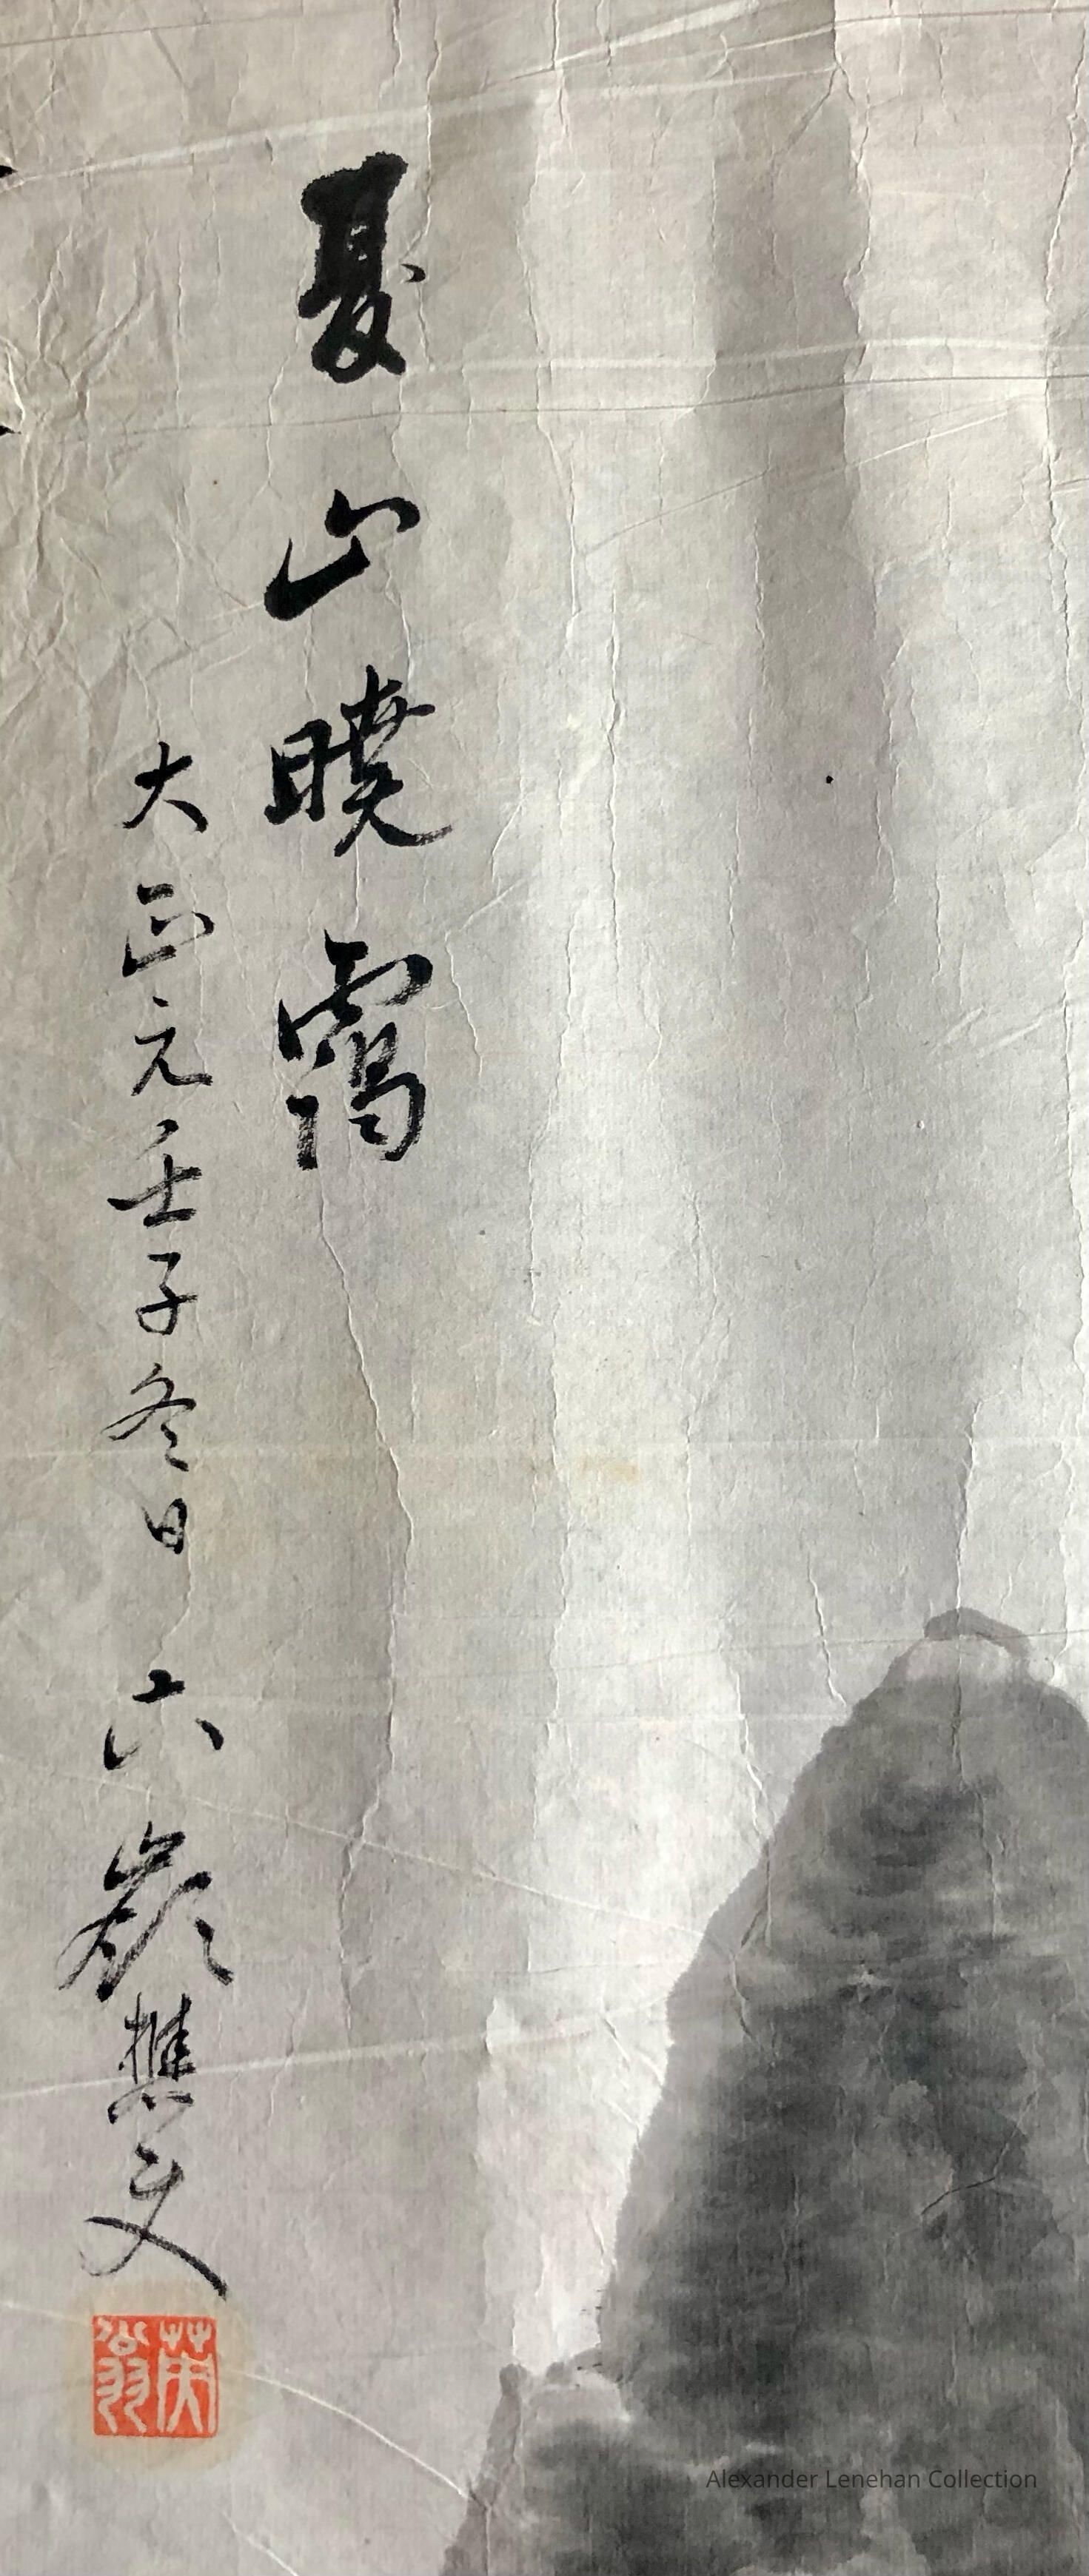 夏山曉靄
大正元壬子冬日 六樵史
英翁
Alexander Lenehan Collection